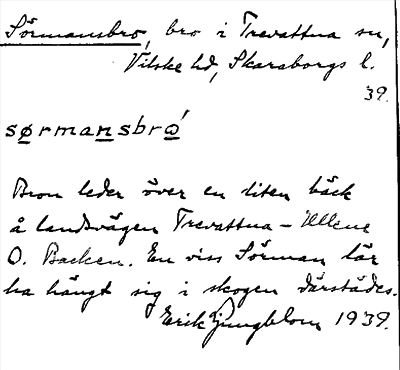 Sörmansbro, bro i Trevattna sn,
Vilske hd, Skaraborgs l.
39.
sørmansbrώ
Bron leder över en liten bäck
å landsvägen Trevattna - Ullene
O. Backen. En viss Sörman lär
ha hängt sig i skogen därstädes.
Erik Ljungblom 1939.